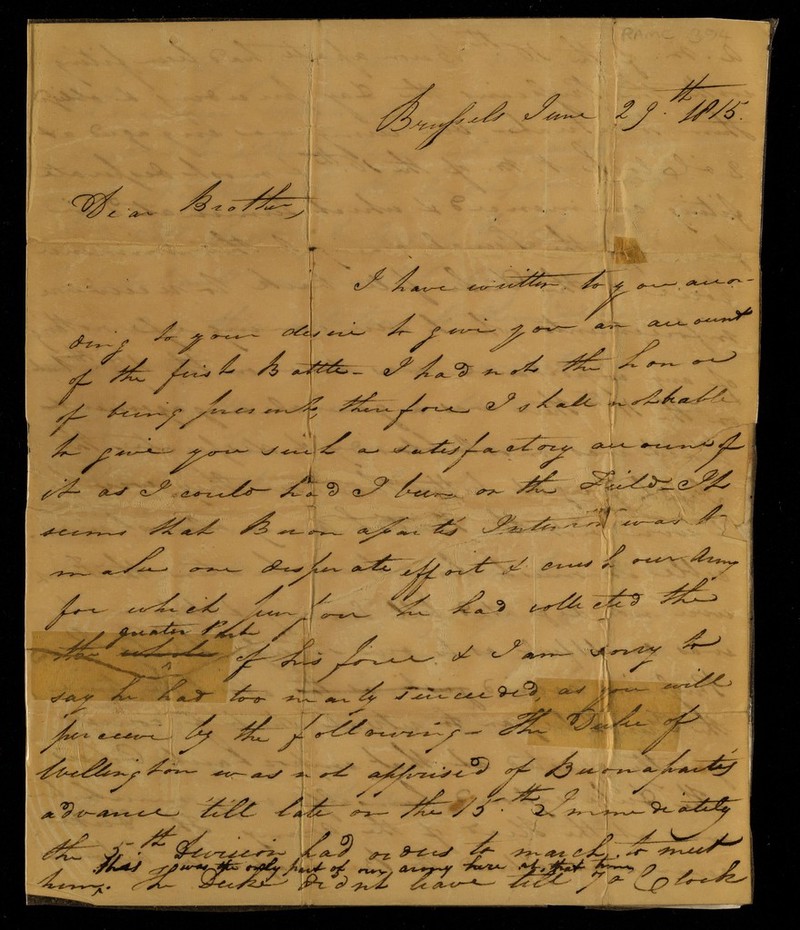 RAMC 394
Brussels June 29.th 1815.
Dear Brother,
I have written to you accor-
ding to your desire to give you an account
of the first Battle - I had not the honor
of being present, therefore I shall not be able
to give you such a satisfactory account of
it as I could had I been on the Field - It
seems that Buonaparte's Intention was to
make one desperate effort & crush our Army
for which purpose he had collected the
greater Part
the whole of his force & I am sorry to
say he had too nearly succeeded, as you will
perceive by the following - The Duke of
Wellington was not apprised of Buonaparte's
advance 'till late on the 15.th Immediately
the 5th Division had orders to march to meet
this was the only part of our army here at that time
him. The Duke did not leave till 7 o'Clock